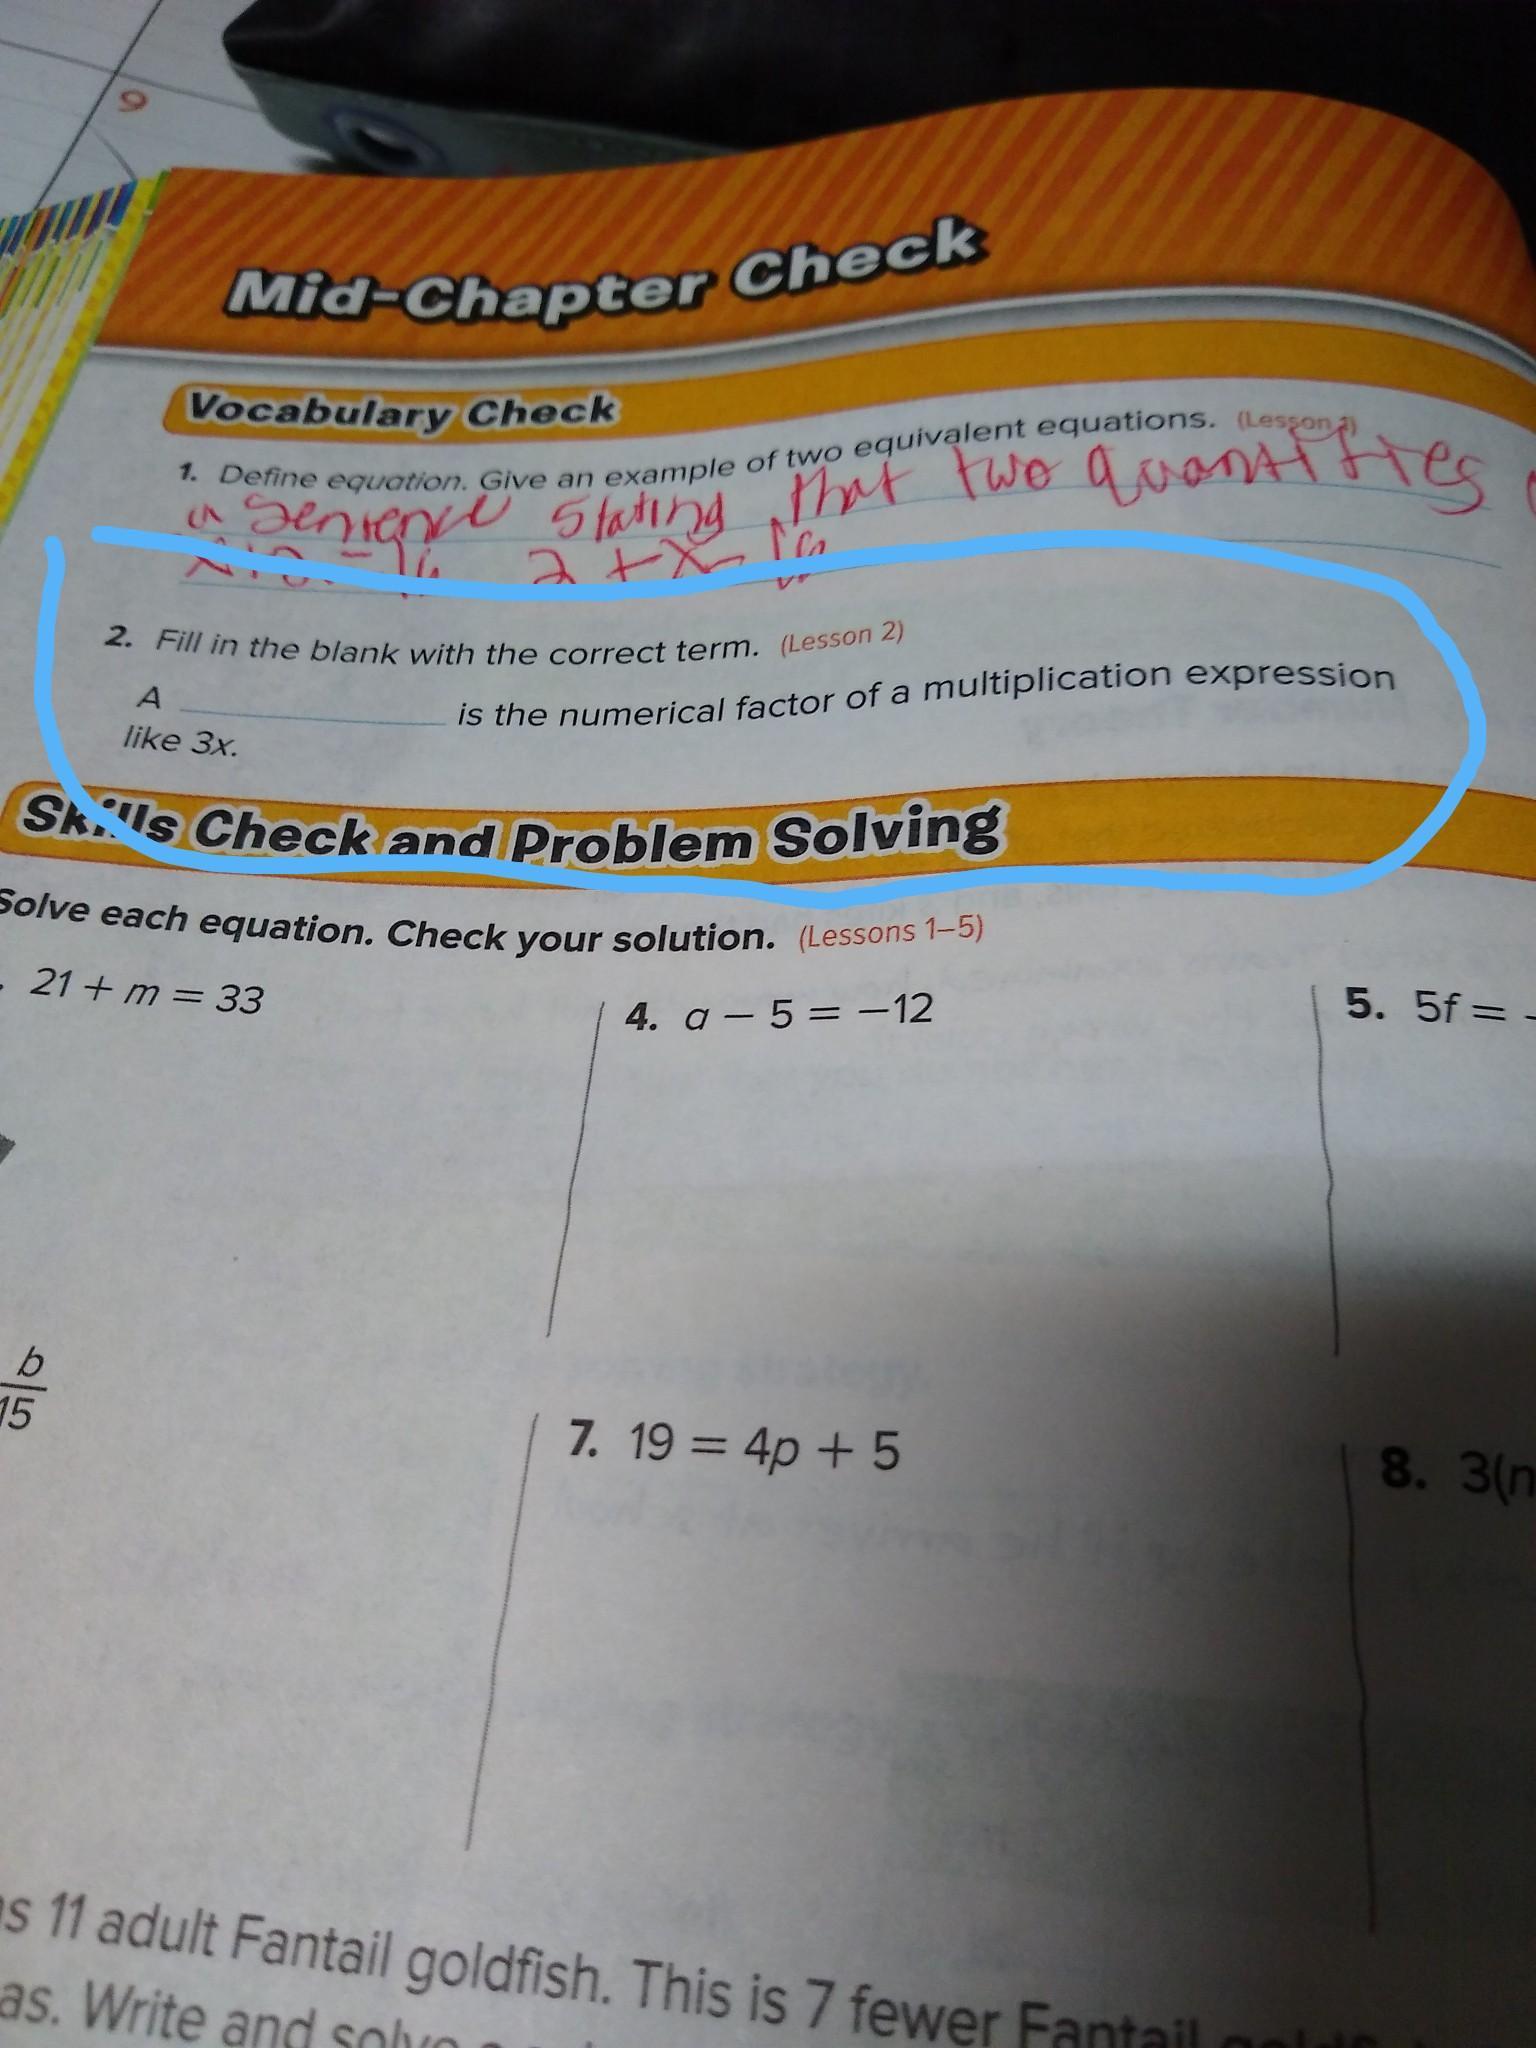 9
Mid-Chapter Check
Vocabulary Check
1. Define equation. Give an example of two equivalent equations. (Lesson 1)
a sentence stating that two quantities
2 + x =
2. Fill in the blank with the correct term. (Lesson 2)
A ____________ is the numerical factor of a multiplication expression
like 3x.
Skills Check and Problem Solving
Solve each equation. Check your solution. (Lessons 1–5)
21 + m = 33
4. a − 5 = −12
5. 5f = -
b
15
7. 19 = 4p + 5
8. 3(n
as 11 adult Fantail goldfish. This is 7 fewer Fantail
as. Write and solve